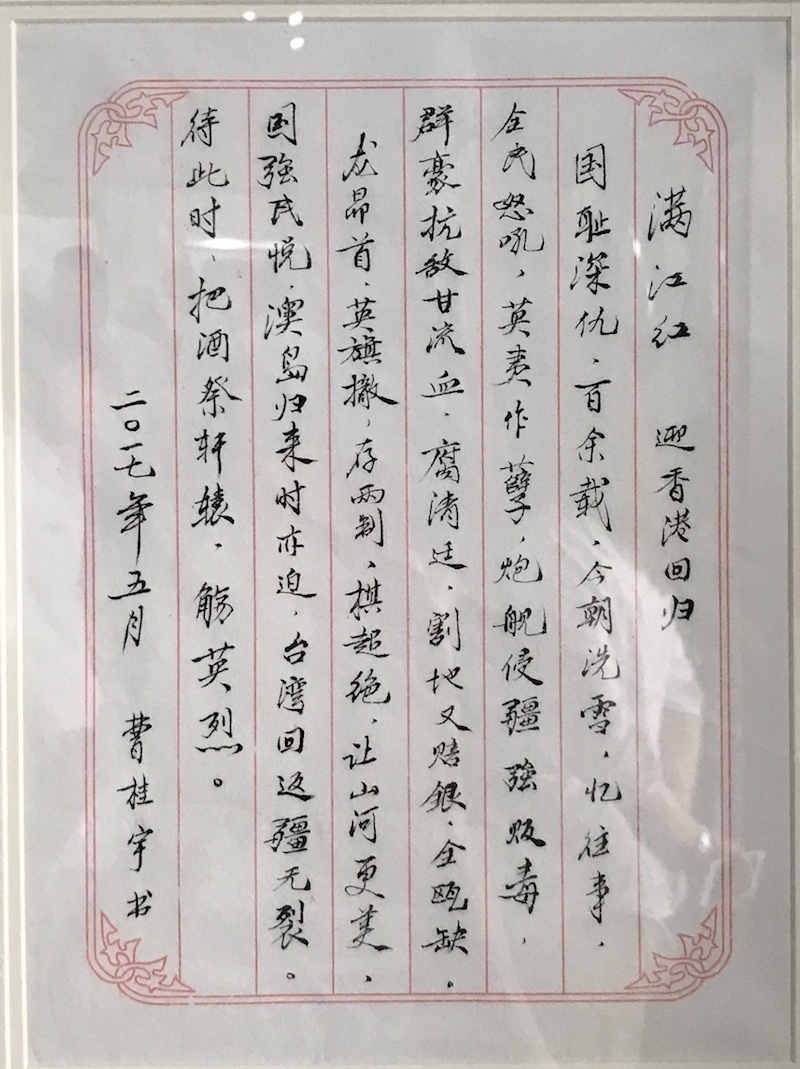 满江红 迎香港回归
国耻深仇、百余载、今朝洗雪、忆往事、
全民怒吼，英夷作孽，炮舰侵疆強贩毒，
群豪抗敌甘流血、腐清廷、割地又赔銀、全瓯缺。
龙昂首、英旗撤，存两制、棋超绝、让山河更美、
国強民悦、澳岛归来时亦迫，台湾回返疆无裂。
待此时、把酒祭轩辕、觞英烈。
二〇一七年五月 曹桂宇书